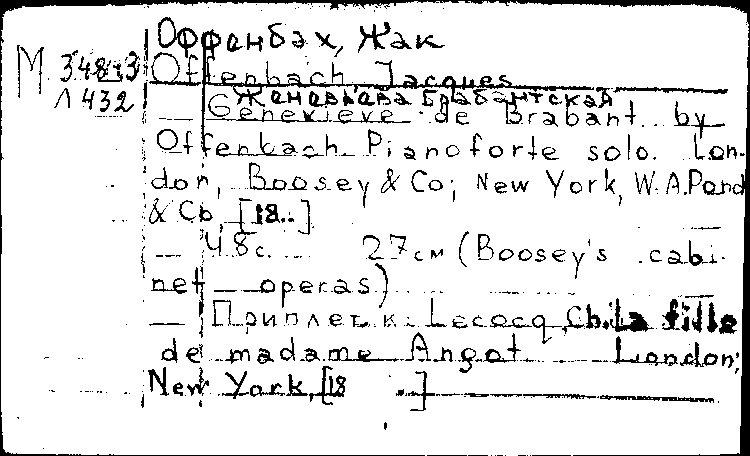 Оффенбах, Жак
М 348-3 Offenbach, Jacques
Л 432
Женевьева Брабантская
Genevieve de Brabant by
Offenbach. Pianoforte solo. Lon-
don, Boosey & Co; New York, W.A.Pond
& Co, [18..]
48с. 27см (Boosey's cabi-
net operas)
Приплет. к: Lecocq, Ch. La fille
de madame Angot London;
New York, [18 ..]